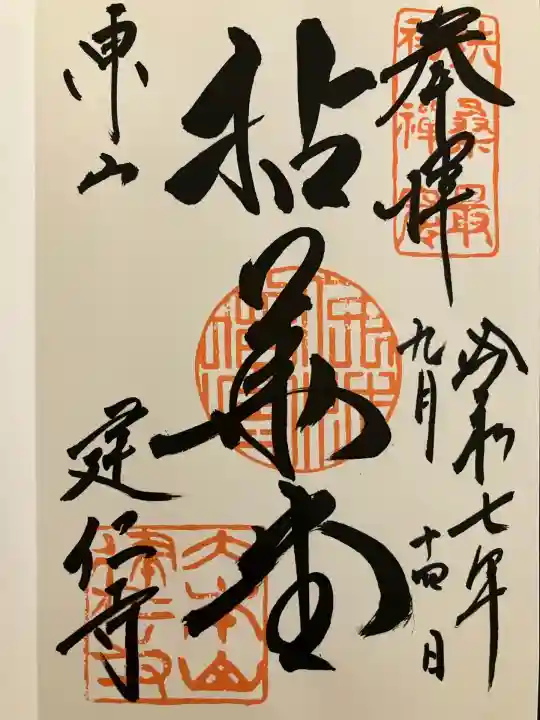 奉拝
扶桑最初禅窟
令和七年
九月
十四日
拈華堂
東山
建仁寺
大本山
建仁寺